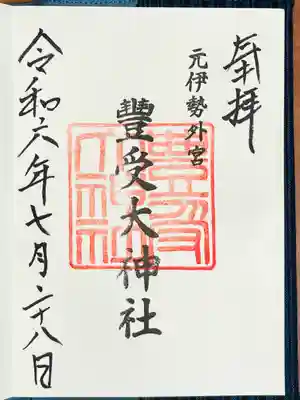 奉拝
元伊勢外宮
豊受大神社
令和六年七月二十八日